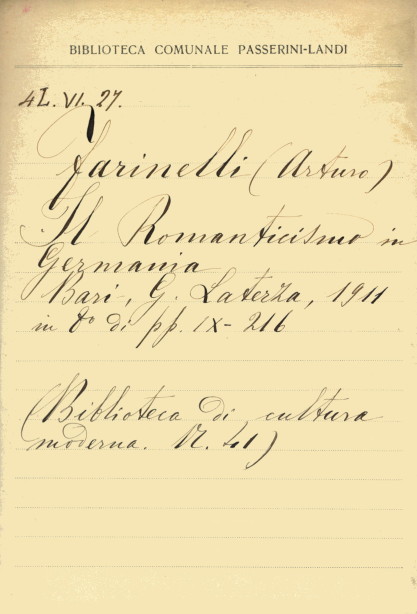 BIBLIOTECA COMUNALE PASSERINI-LANDI
4L. VI. 27.
Farinelli (Arturo)
Il Romanticismo in
Germania
Bari, G. Laterza, 1911
in 8° di pp. IX-216
(Biblioteca di cultura
moderna. N. 41)